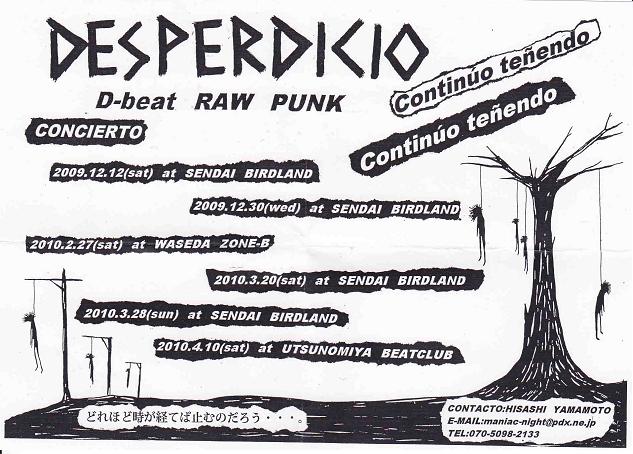 DESPERDICIO
D-beat RAW PUNK
Continúo teñendo
Continúo teñendo
CONCIERTO
2009.12.12(sat) at SENDAI BIRDLAND
2009.12.30(wed) at SENDAI BIRDLAND
2010.2.27(sat) at WASEDA ZONE-B
2010.3.20(sat) at SENDAI BIRDLAND
2010.3.28(sun) at SENDAI BIRDLAND
2010.4.10(sat) at UTSUNOMIYA BEATCLUB
どれほど時が経てば止むのだろう・・・。
CONTACTO:HISASHI YAMAMOTO
E-MAIL:maniac-night@pdx.ne.jp
TEL:070-5098-2133